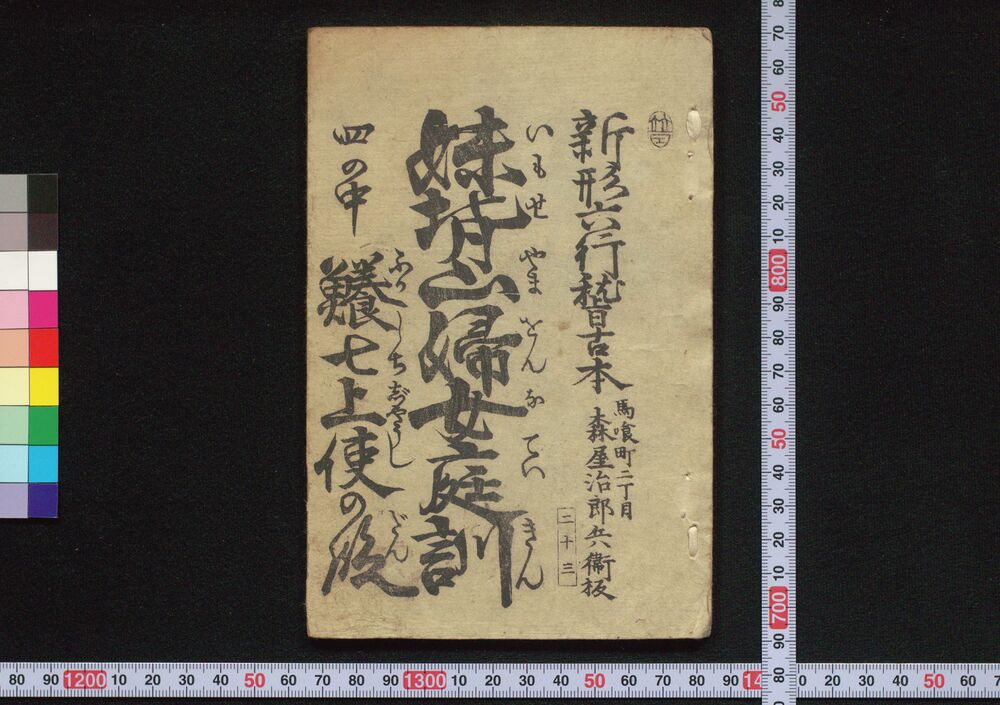 新形六行稽古本
馬喰町二丁目
森屋治郎兵衞板
二十三
いもせやまをんなていきん
妹背山婦女庭訓
四の中
ふかしちぢやうしのだん
鱶七上使の段
80 90 1200 10 20 30 40 50 60 70 80 90 1300 10 20 30 40 50 60 70 80 90 14 20 30 40 50 60 7
80 70 60 50 40 30 20 10 800 90 80 70 60 50 40 30 20 10 700 90 80